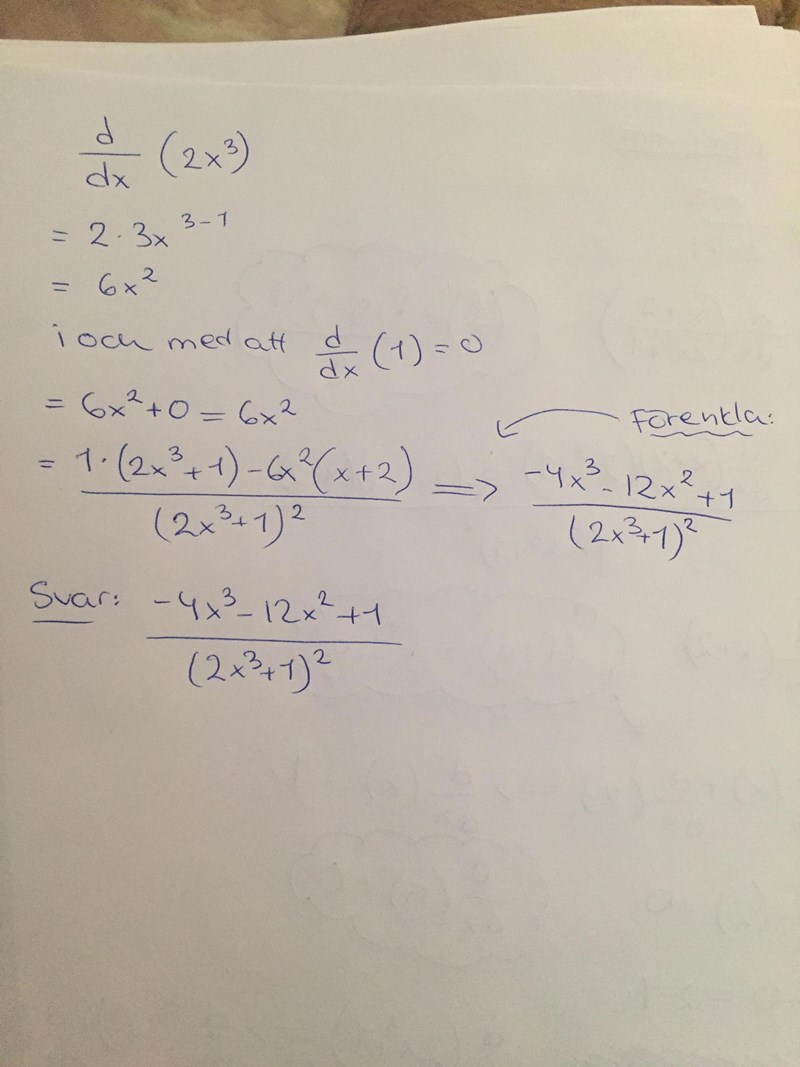 d/dx (2x³)
= 2·3x³⁻¹
= 6x²
i och med att d/dx (1) = 0
= 6x² + 0 = 6x²
Förenkla:
= 1·(2x³+1) - 6x²(x+2) / (2x³+1)² => -4x³ - 12x² + 1 / (2x³+1)²
Svar: -4x³ - 12x² + 1 / (2x³+1)²